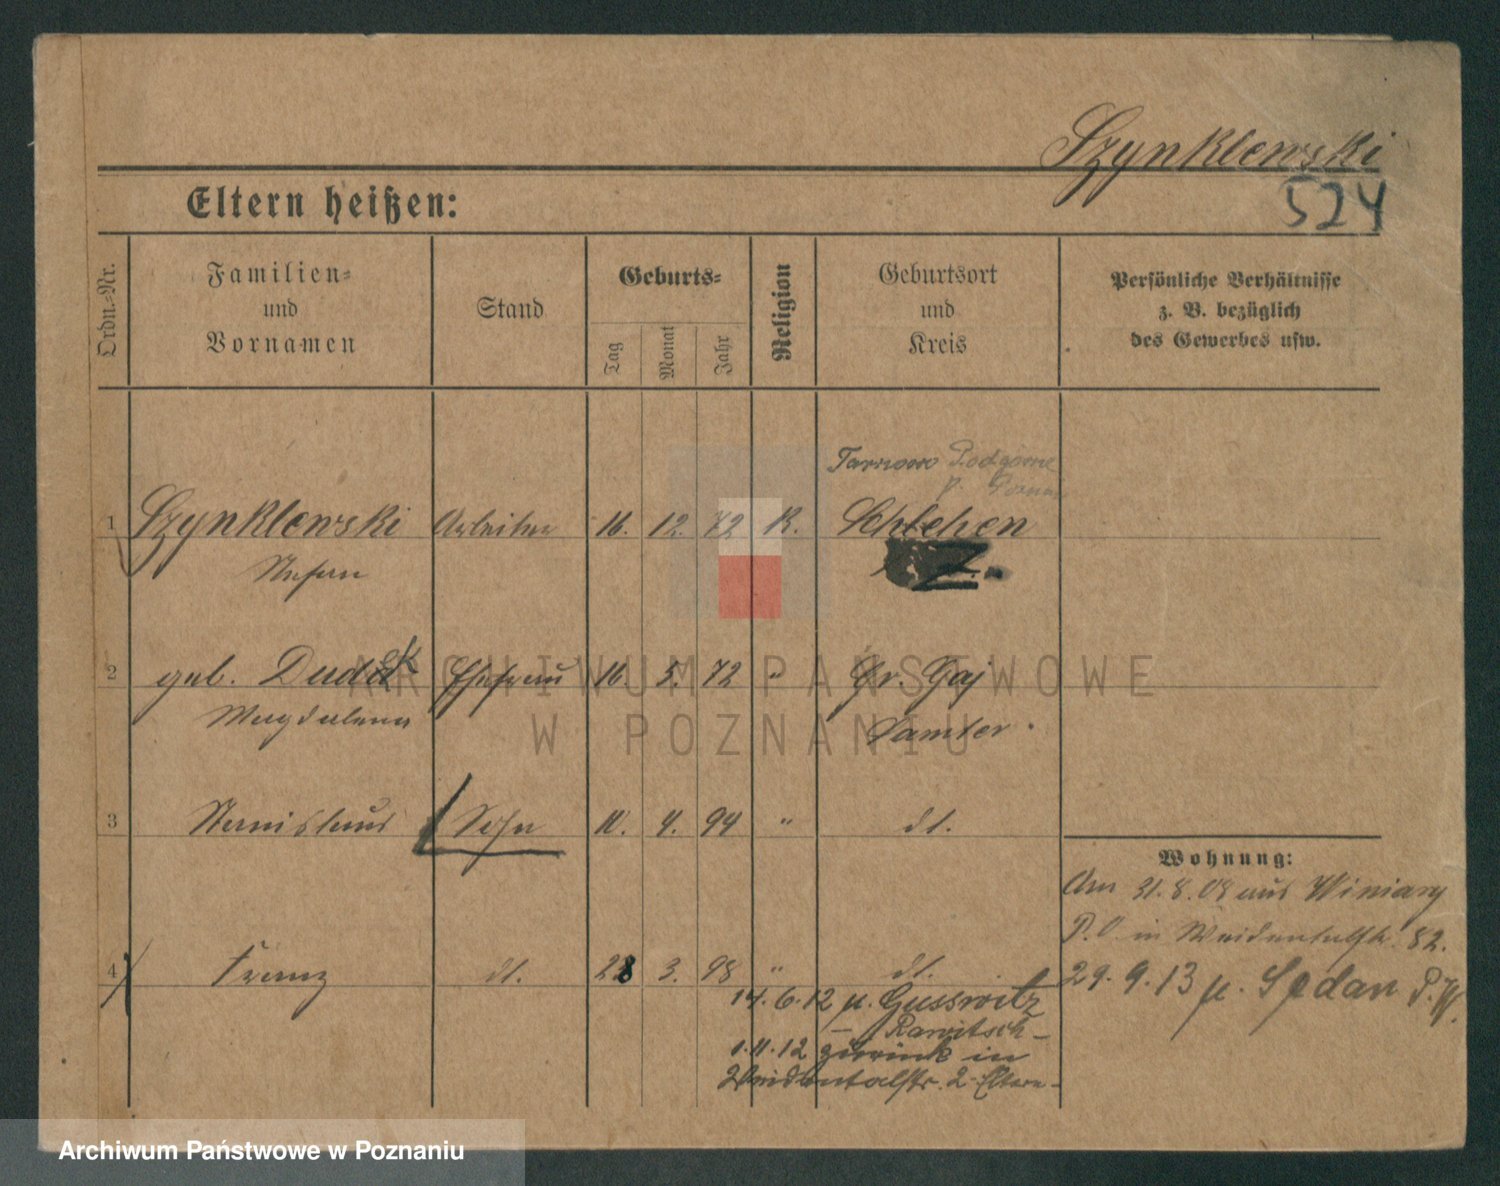 Szynklewski
524
Eltern heißen:
Ordn.-Nr.
Familien-
und
Vornamen
Stand
Geburts-
Tag
Monat
Jahr
Religion
Geburtsort
und
Kreis
Persönliche Verhältnisse
z. B. bezüglich
des Gewerbes usw.
Tarnowo Podgórne
p. Poznań
1 Szynklewski Arbeiter 16. 12. 72 K. Schlehen
Stefan
2 geb. Dudek Ehefrau 16. 5. 72 " Gr. Gaj
Magdalena Samter.
3 Stanislaus Sohn 10. 4. 94 " dt.
Wohnung:
Am 31.8.08 aus Winiary
P.O. in Weidentalstr. 82.
4 Franz dt. 28 3. 98 " dt.
29.9.13 n. Sedan P.W.
14.6.12 n. Gusswitz
- Rawitsch -
1.11.12 zurück in
Weidentalstr. 2 - Eltern -
ARCHIWUM PAŃSTWOWE
W POZNANIU
Archiwum Państwowe w Poznaniu